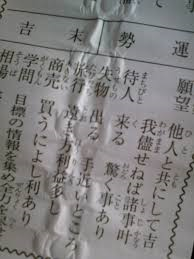 運勢 末吉
願望 他人と共にして吉
我儘せねば諸事叶
待人 来る 驚く事あり
失物 出る 手近いところ
旅行 多し
商売 買うによし利あり
学問 目標の情報を集め全力を
相場